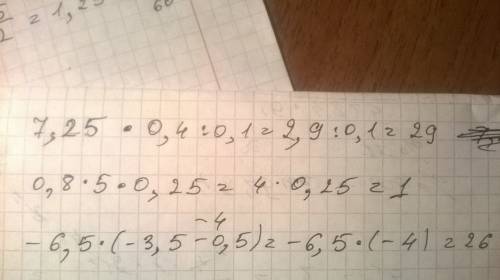 = 1,25
60
7,25 · 0,4 : 0,1 = 2,9 : 0,1 = 29
0,8 · 5 · 0,25 = 4 · 0,25 = 1
-4
-6,5 · (-3,5 - 0,5) = -6,5 · (-4) = 26